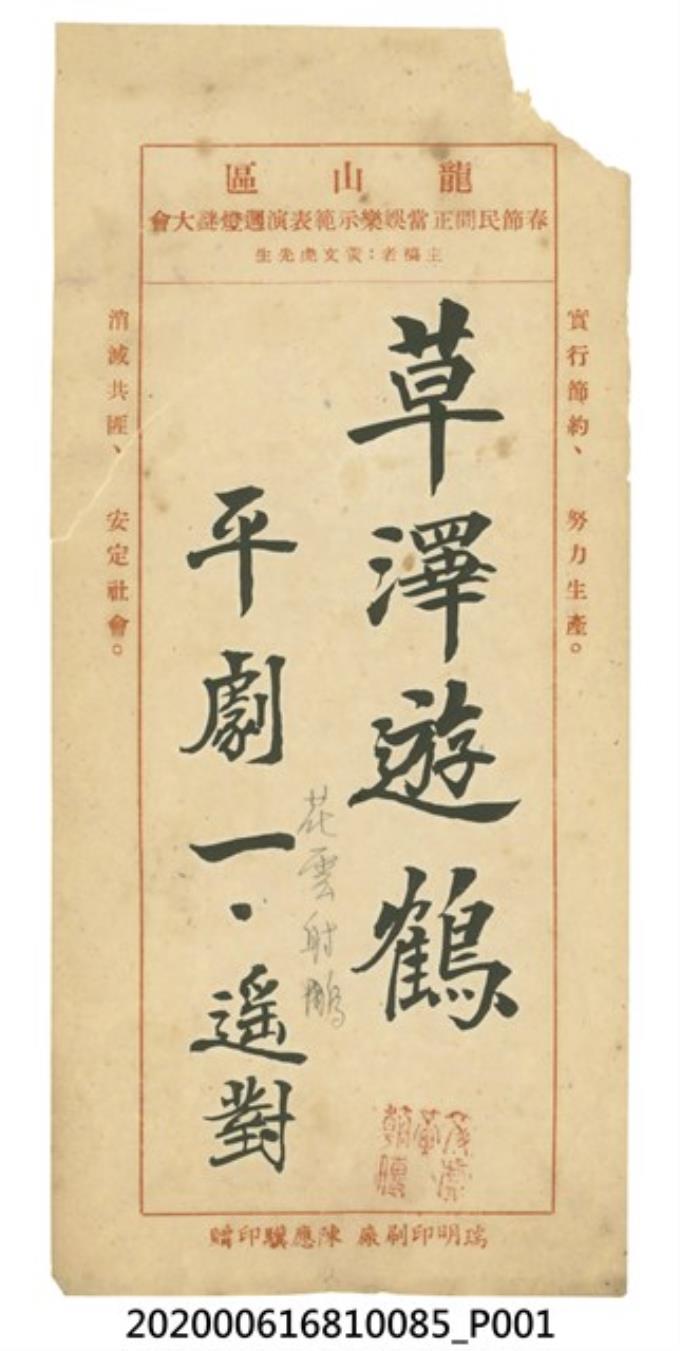 龍山區
春節民間正當娛樂示範表演週燈謎大會
主稿者：黃文虎先生
實行節約、 努力生產。
草澤遊鶴
平劇一·遥對
花雲射鵰
消滅共匪、 安定社會。
瑞明印刷廠 陳應驥印贈
202000616810085_P001